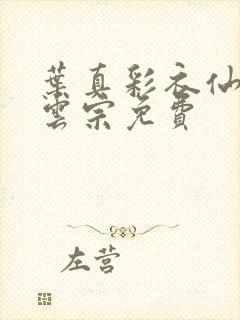 葉真彩衣仙
雲宗免費
左营